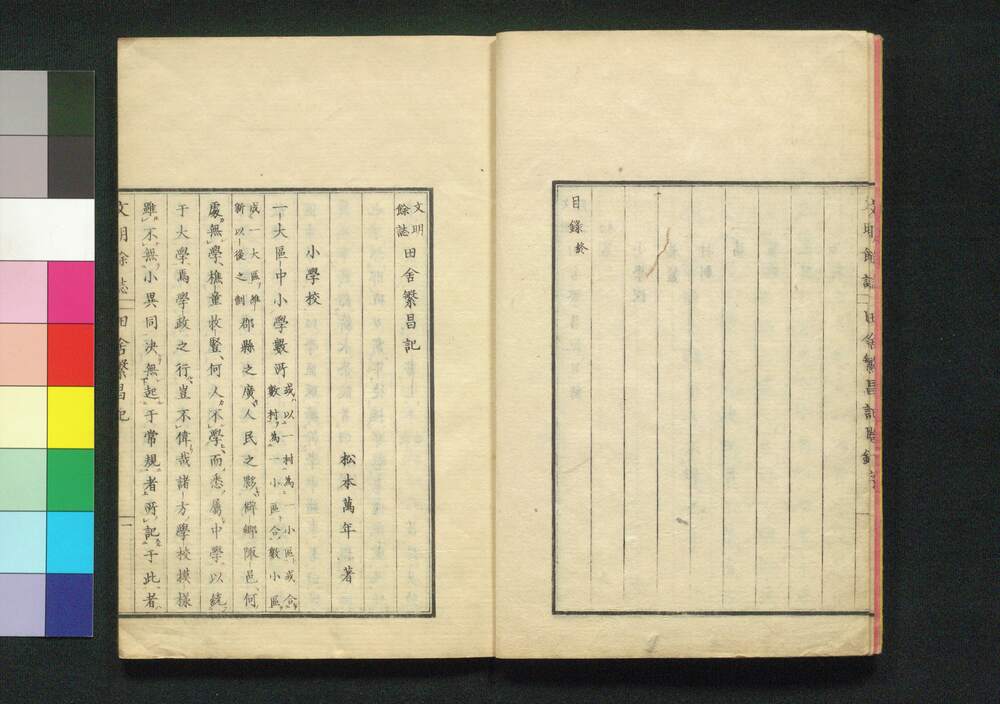 目錄終
文明餘誌 田舍繁昌記
松本萬年 著
小學校
一大區中小學數所 或以一村為一小區或合數村為一小區合數小區
成一大區維新以後之制 郡縣之廣人民之夥僻鄉陬邑何
處無學樵童牧豎何人不學而悉屬中學以統
于大學焉學政之行豈不偉哉諸方學校摸樣
雖不無小異同決無起于常規者所記于此者
文明餘誌 田舍繁昌記 一
文明餘誌 田舍繁昌記目錄